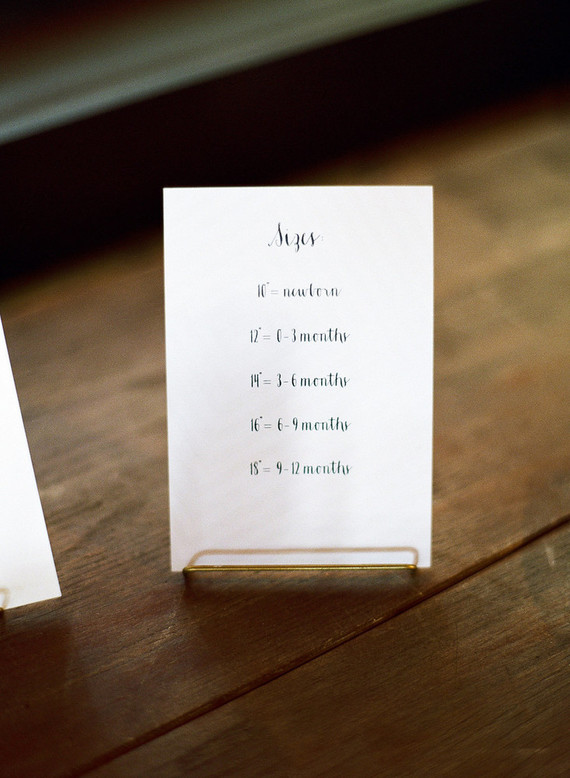 Sizes:
10"= newborn
12"= 0-3 months
14"= 3-6 months
16"= 6-9 months
18"= 9-12 months